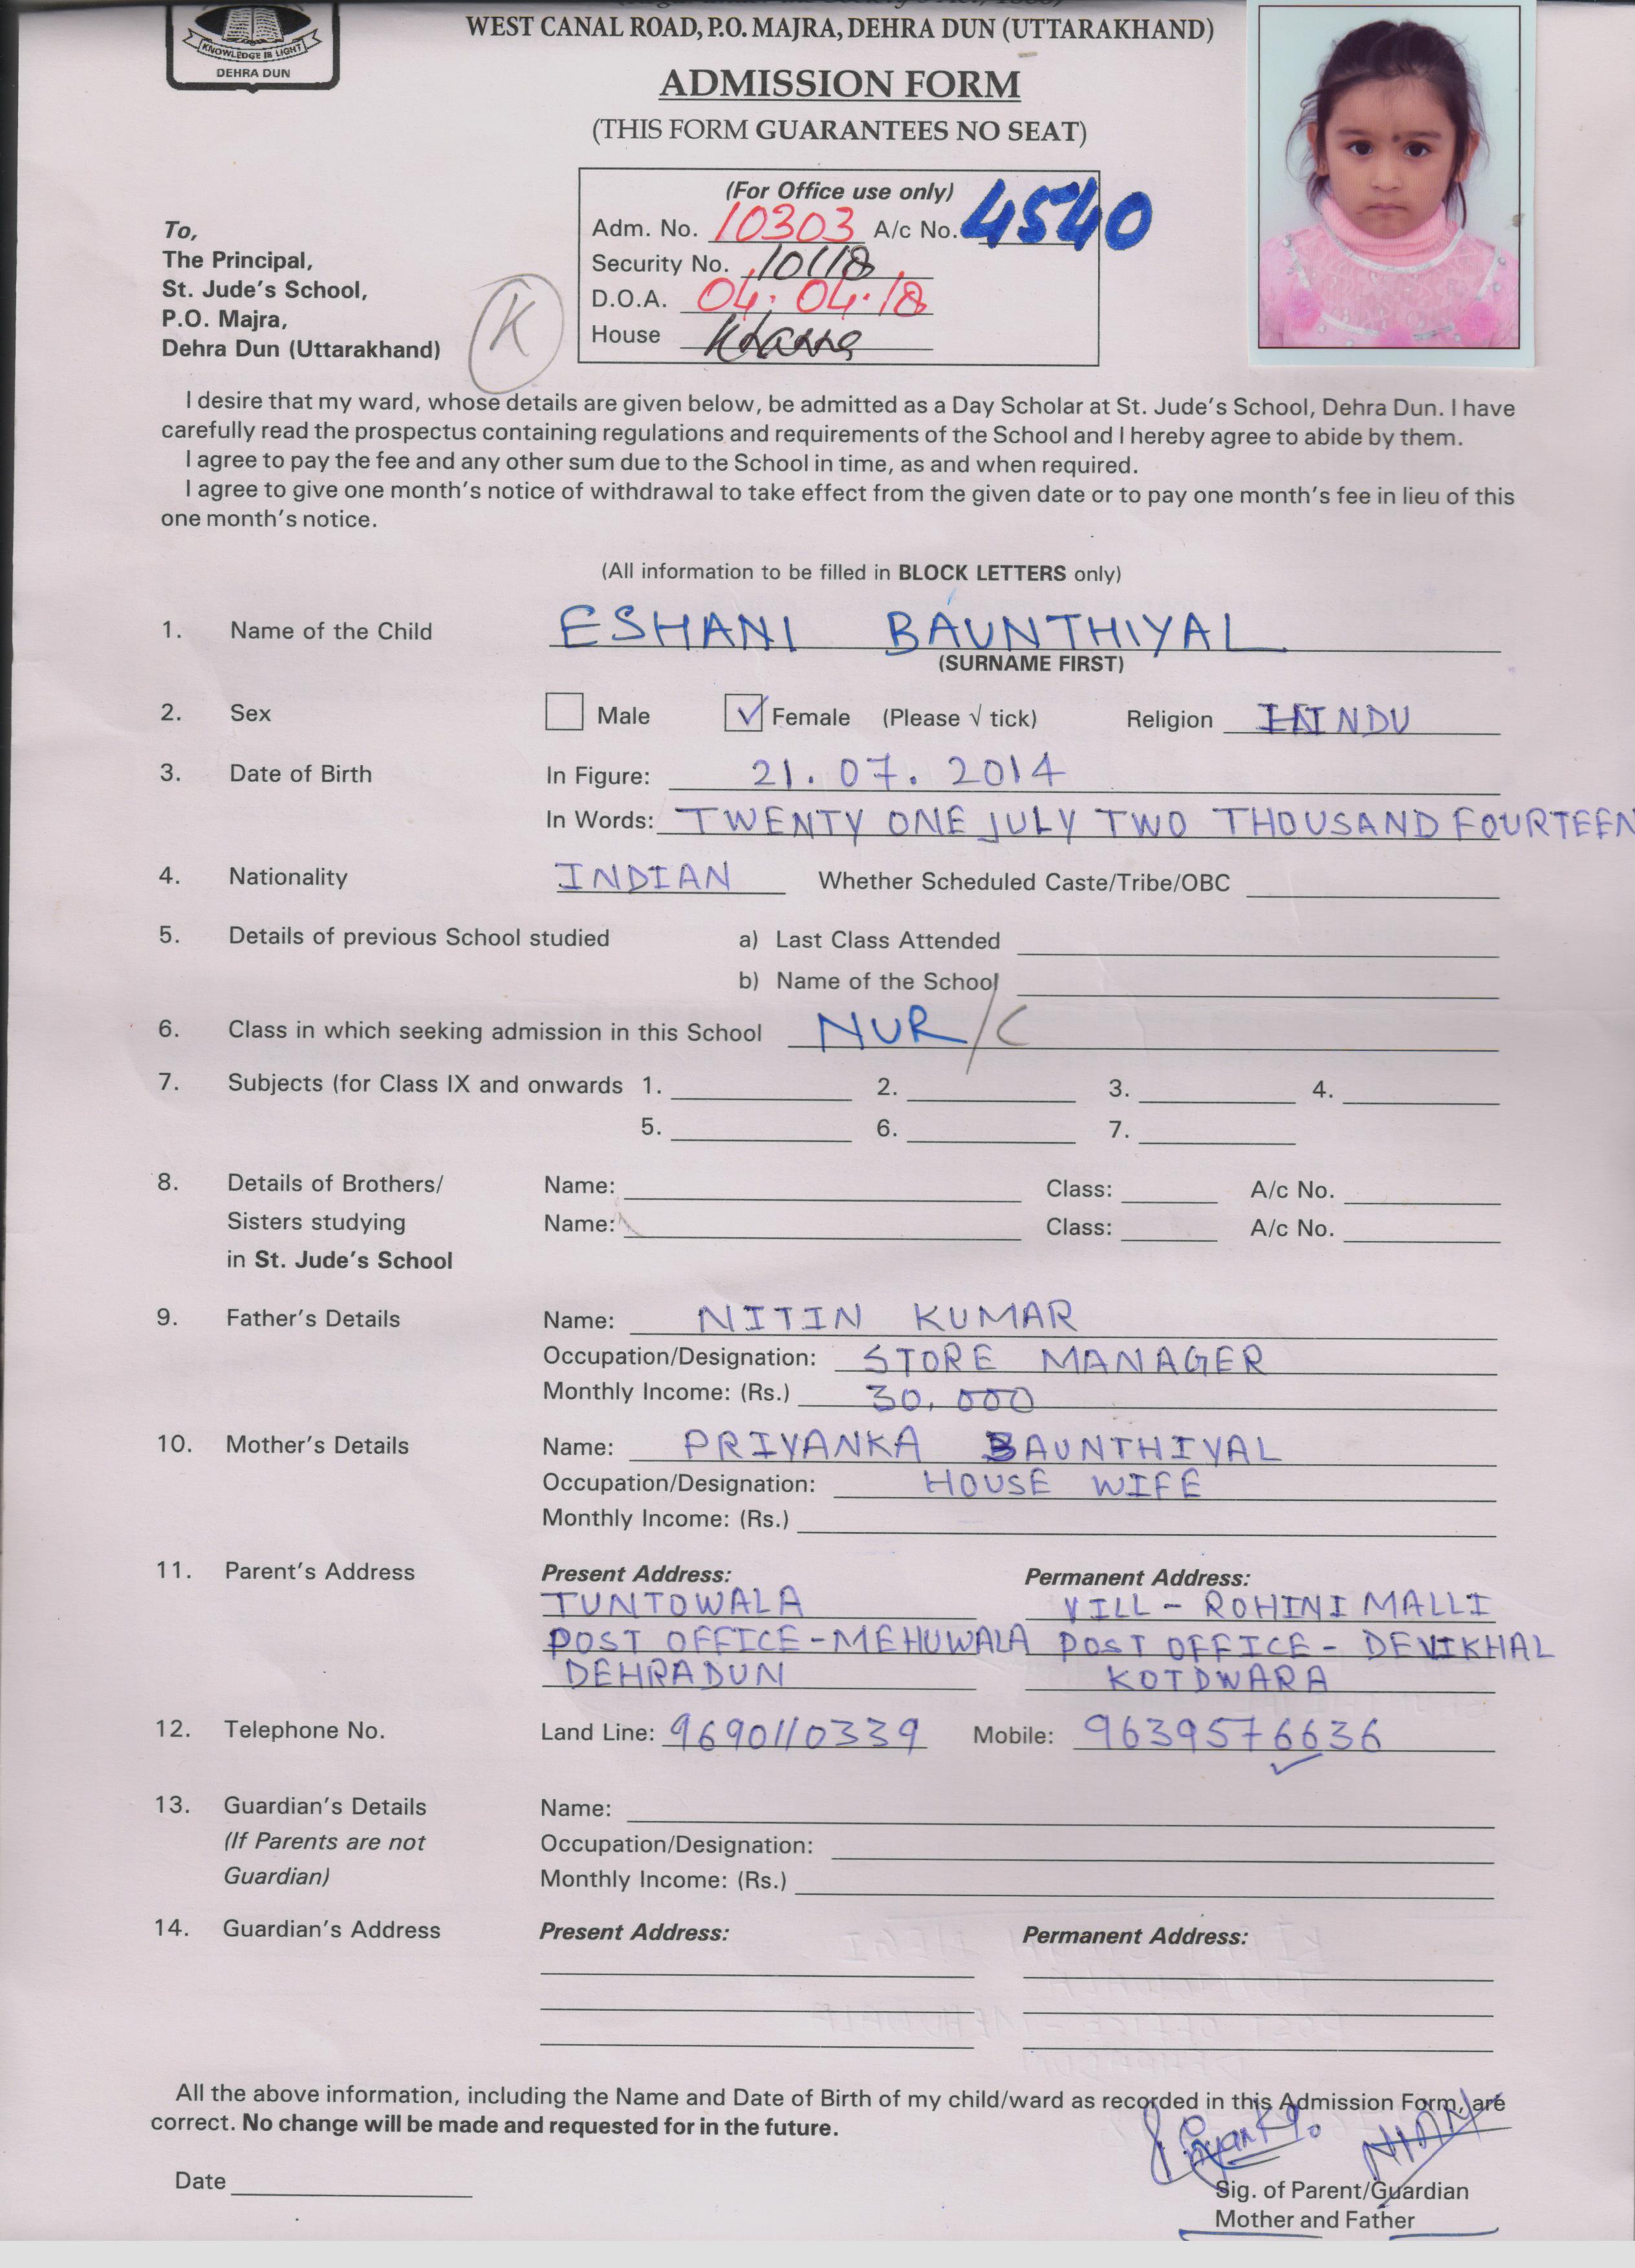 KNOWLEDGE IS LIGHT
DEHRA DUN
WEST CANAL ROAD, P.O. MAJRA, DEHRA DUN (UTTARAKHAND)
ADMISSION FORM
(THIS FORM GUARANTEES NO SEAT)
(For Office use only)
Adm. No. 10303 A/c No. 4540
Security No. 10118
D.O.A. 04.04.18
House
To,
The Principal,
St. Jude's School,
P.O. Majra,
Dehra Dun (Uttarakhand)
K
I desire that my ward, whose details are given below, be admitted as a Day Scholar at St. Jude's School, Dehra Dun. I have
carefully read the prospectus containing regulations and requirements of the School and I hereby agree to abide by them.
I agree to pay the fee and any other sum due to the School in time, as and when required.
I agree to give one month's notice of withdrawal to take effect from the given date or to pay one month's fee in lieu of this
one month's notice.
(All information to be filled in BLOCK LETTERS only)
1. Name of the Child ESHANI BAUNTHIYAL
(SURNAME FIRST)
2. Sex Male ✓ Female (Please √ tick) Religion HINDU
3. Date of Birth In Figure: 21.07.2014
In Words: TWENTY ONE JULY TWO THOUSAND FOURTEEN
4. Nationality INDIAN Whether Scheduled Caste/Tribe/OBC
5. Details of previous School studied a) Last Class Attended
b) Name of the School
6. Class in which seeking admission in this School NUR/C
7. Subjects (for Class IX and onwards 1. 2. 3. 4.
5. 6. 7.
8. Details of Brothers/ Name: Class: A/c No.
Sisters studying Name: Class: A/c No.
in St. Jude's School
9. Father's Details Name: NITIN KUMAR
Occupation/Designation: STORE MANAGER
Monthly Income: (Rs.) 30,000
10. Mother's Details Name: PRIYANKA BAUNTHIYAL
Occupation/Designation: HOUSE WIFE
Monthly Income: (Rs.)
11. Parent's Address Present Address: Permanent Address:
TUNTOWALA VILL - ROHINI MALLI
POST OFFICE - MEHUWALA POST OFFICE - DEVIKHAL
DEHRADUN KOTDWARA
12. Telephone No. Land Line: 9690110339 Mobile: 9639576636
13. Guardian's Details Name:
(If Parents are not Occupation/Designation:
Guardian) Monthly Income: (Rs.)
14. Guardian's Address Present Address: Permanent Address:
All the above information, including the Name and Date of Birth of my child/ward as recorded in this Admission Form, are
correct. No change will be made and requested for in the future.
Priyanka
Date Sig. of Parent/Guardian
Mother and Father